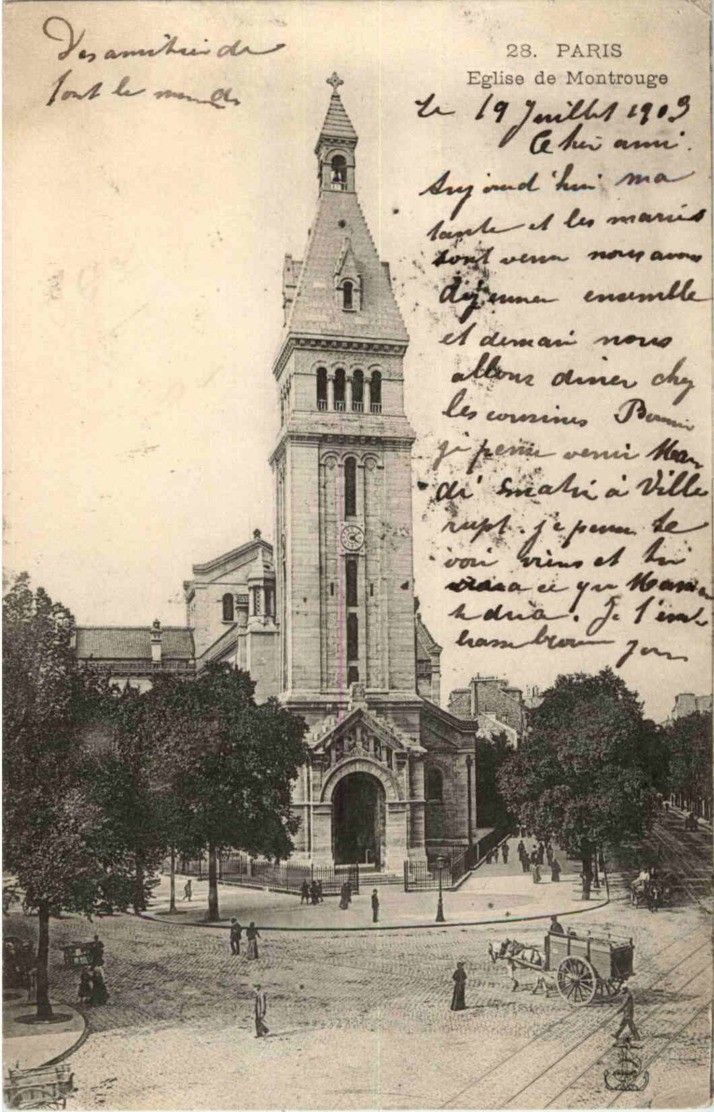 Des amitiés de
tout le monde
28. PARIS
Eglise de Montrouge
le 19 Juillet 1903
Cher ami.
Aujourd'hui ma
tante et les mariés
sont venu nous avons
déjeuner ensemble
et demain nous
allons diner chez
les cousines
je pense venir Mar
di matin à Ville
rupt. je pense te
voir viens et tu
ce que Maman
te dira. Je t'em
brasse